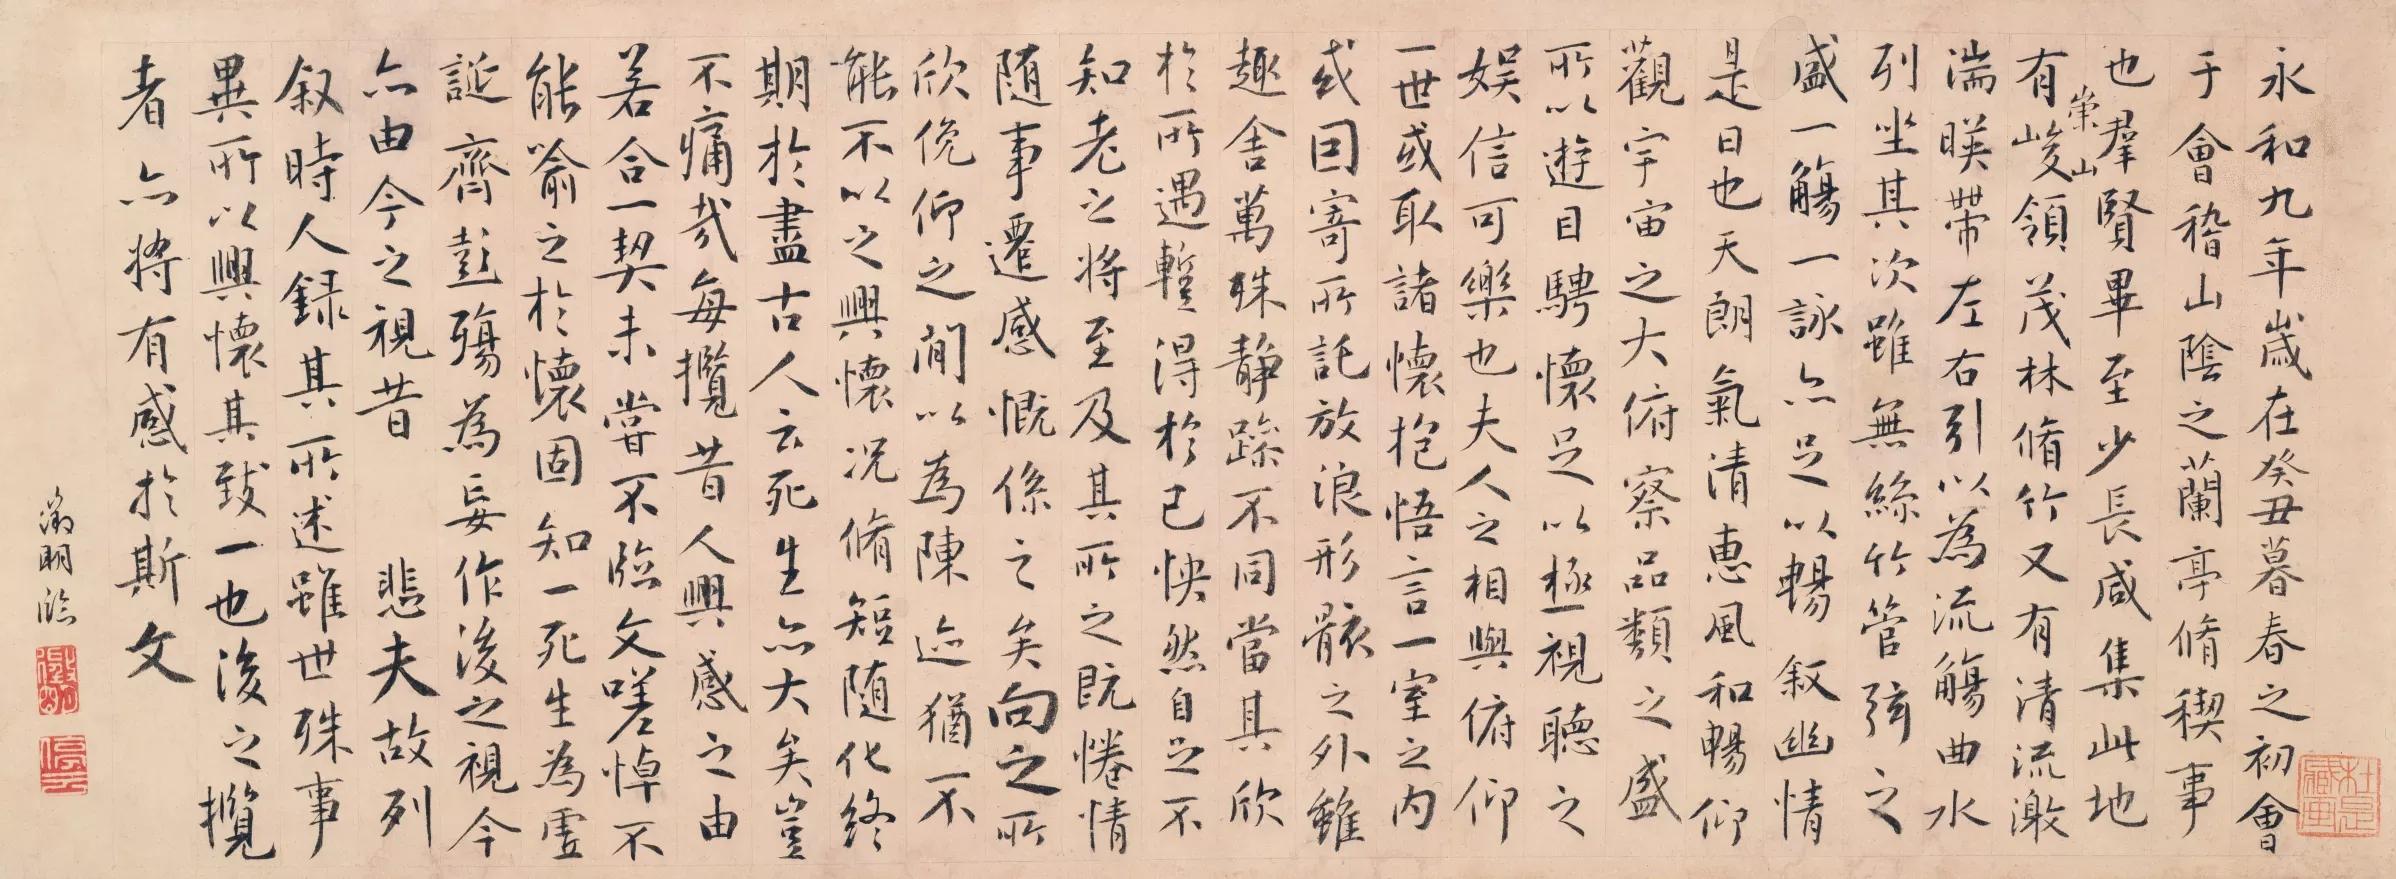 永和九年歲在癸丑暮春之初會
于會稽山陰之蘭亭脩稧事
也羣賢畢至少長咸集此地
崇山
有峻領茂林脩竹又有清流激
湍暎帶左右引以為流觴曲水
列坐其次雖無絲竹管弦之
盛一觴一詠亦足以暢叙幽情
是日也天朗氣清惠風和暢仰
觀宇宙之大俯察品類之盛
所以遊目騁懷足以極視聽之
娛信可樂也夫人之相與俯仰
一世或取諸懷抱悟言一室之內
或因寄所託放浪形骸之外雖
趣舍萬殊靜躁不同當其欣
於所遇蹔得於己怏然自足不
知老之將至及其所之既惓情
随事遷感慨係之矣向之所
欣俛仰之閒以為陳迹猶不
能不以之興懷況脩短随化終
期於盡古人云死生亦大矣豈
不痛哉每攬昔人興感之由
若合一契未嘗不臨文嗟悼不
能喻之於懷固知一死生為虛
誕齊彭殤為妄作後之視今
亦由今之視昔 悲夫故列
叙時人錄其所述雖世殊事
異所以興懷其致一也後之攬
者亦將有感於斯文
徵明臨
徵明
停雲